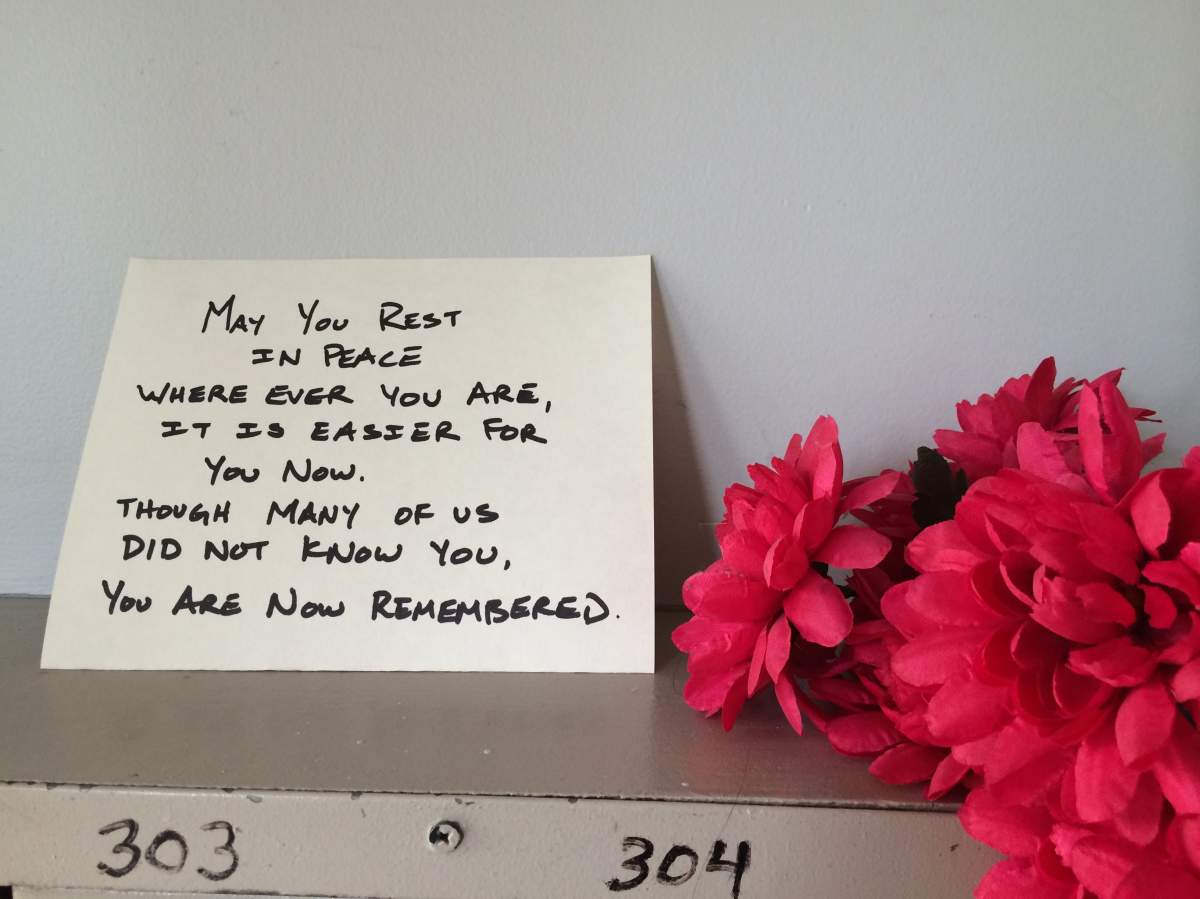 May You Rest
in Peace
Where ever you are,
it is easier for
You Now.
Though many of us
did not know you,
You are Now remembered.
303
304